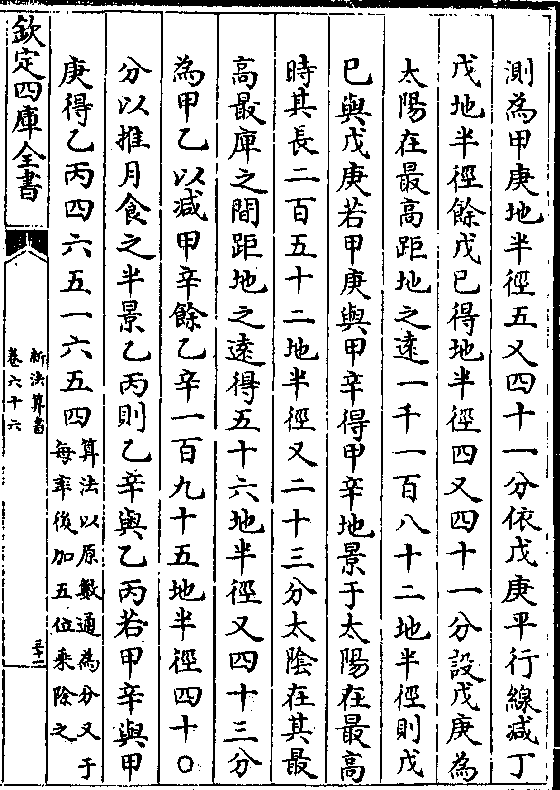 測為甲庚地半徑五又四十一分依戊庚平行線減丁
戊地半徑餘戊已得地半徑四又四十一分設戊庚為
太陽在最高距地之遠一千一百八十二地半徑則戊
已與戊庚若甲庚與甲辛得甲辛地景于太陽在最高
時其長二百五十二地半徑又二十三分太陰在其最
高最庳之間距地之遠得五十六地半徑又四十三分
為甲乙以減甲辛餘乙辛一百九十五地半徑四十〇
分以推月食之半景乙丙則乙辛與乙丙若甲辛與甲
庚得乙丙四六五一六五四
算法以原數通為分又于
每率後加五位乗除之
欽定四庫全書
新法算書
卷六十六
三十二